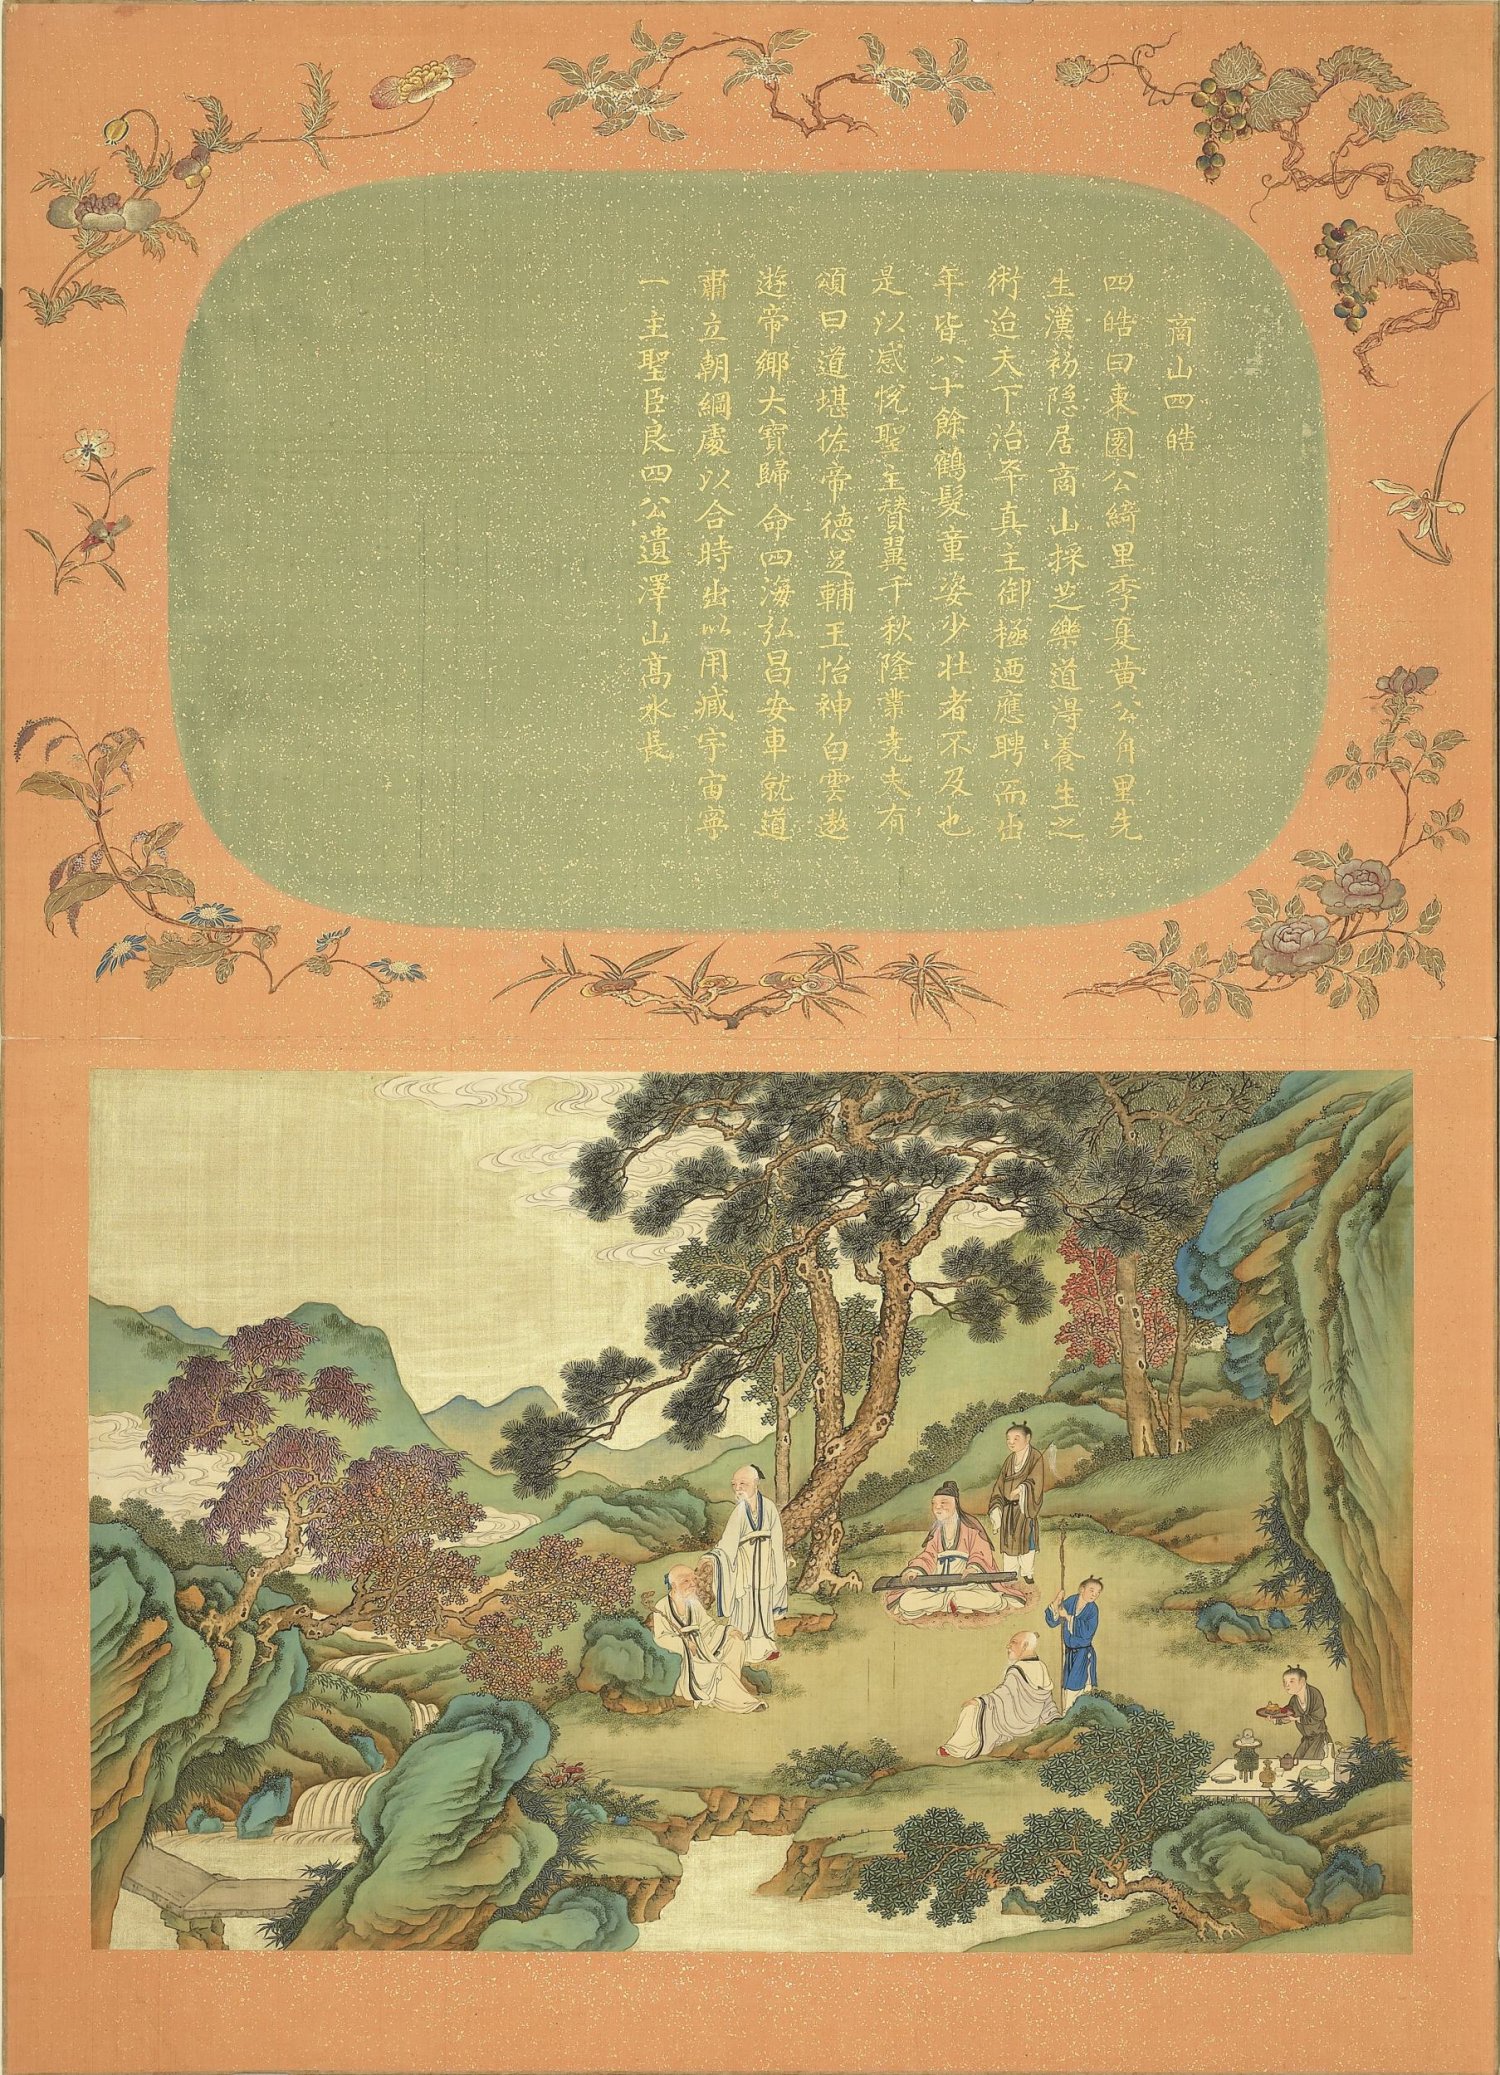 商山四皓
四皓曰東園公綺里季夏黃公甪里先
生漢初隱居商山採芝樂道淂養生之
術迨天下治平真主御極迺應聘而出
年皆八十餘鶴髮童姿少壯者不及也
是以感悅聖主贊翼千秋隆業克夫有
頌曰道堪佐帝德足輔王怡神白雲遨
遊帝鄉大寶歸命四海弘昌安車就道
肅立朝綱處以合時出以用臧宇宙寧
一主聖臣良四公遺澤山高水長